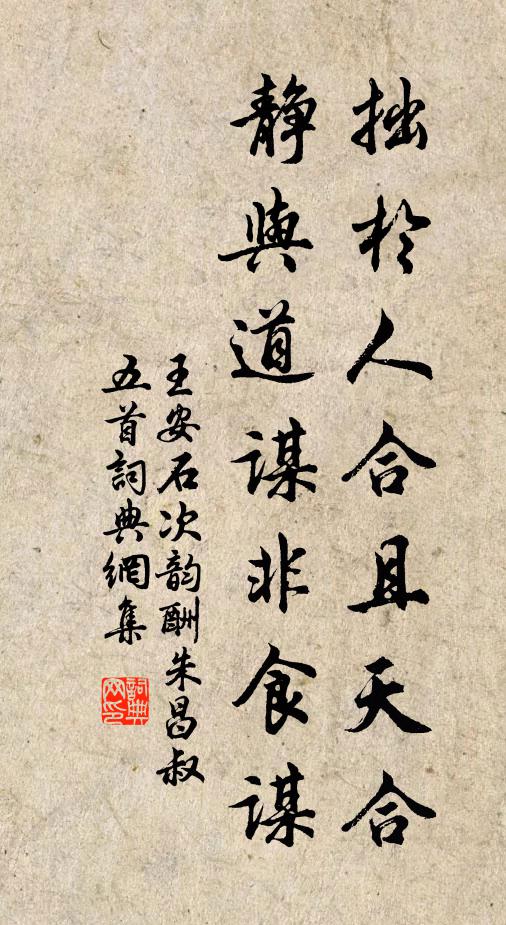 拙於人合且天合
静與道謀非食謀
王安石次韵酬朱昌叔
五首詞典網集
詞典網印